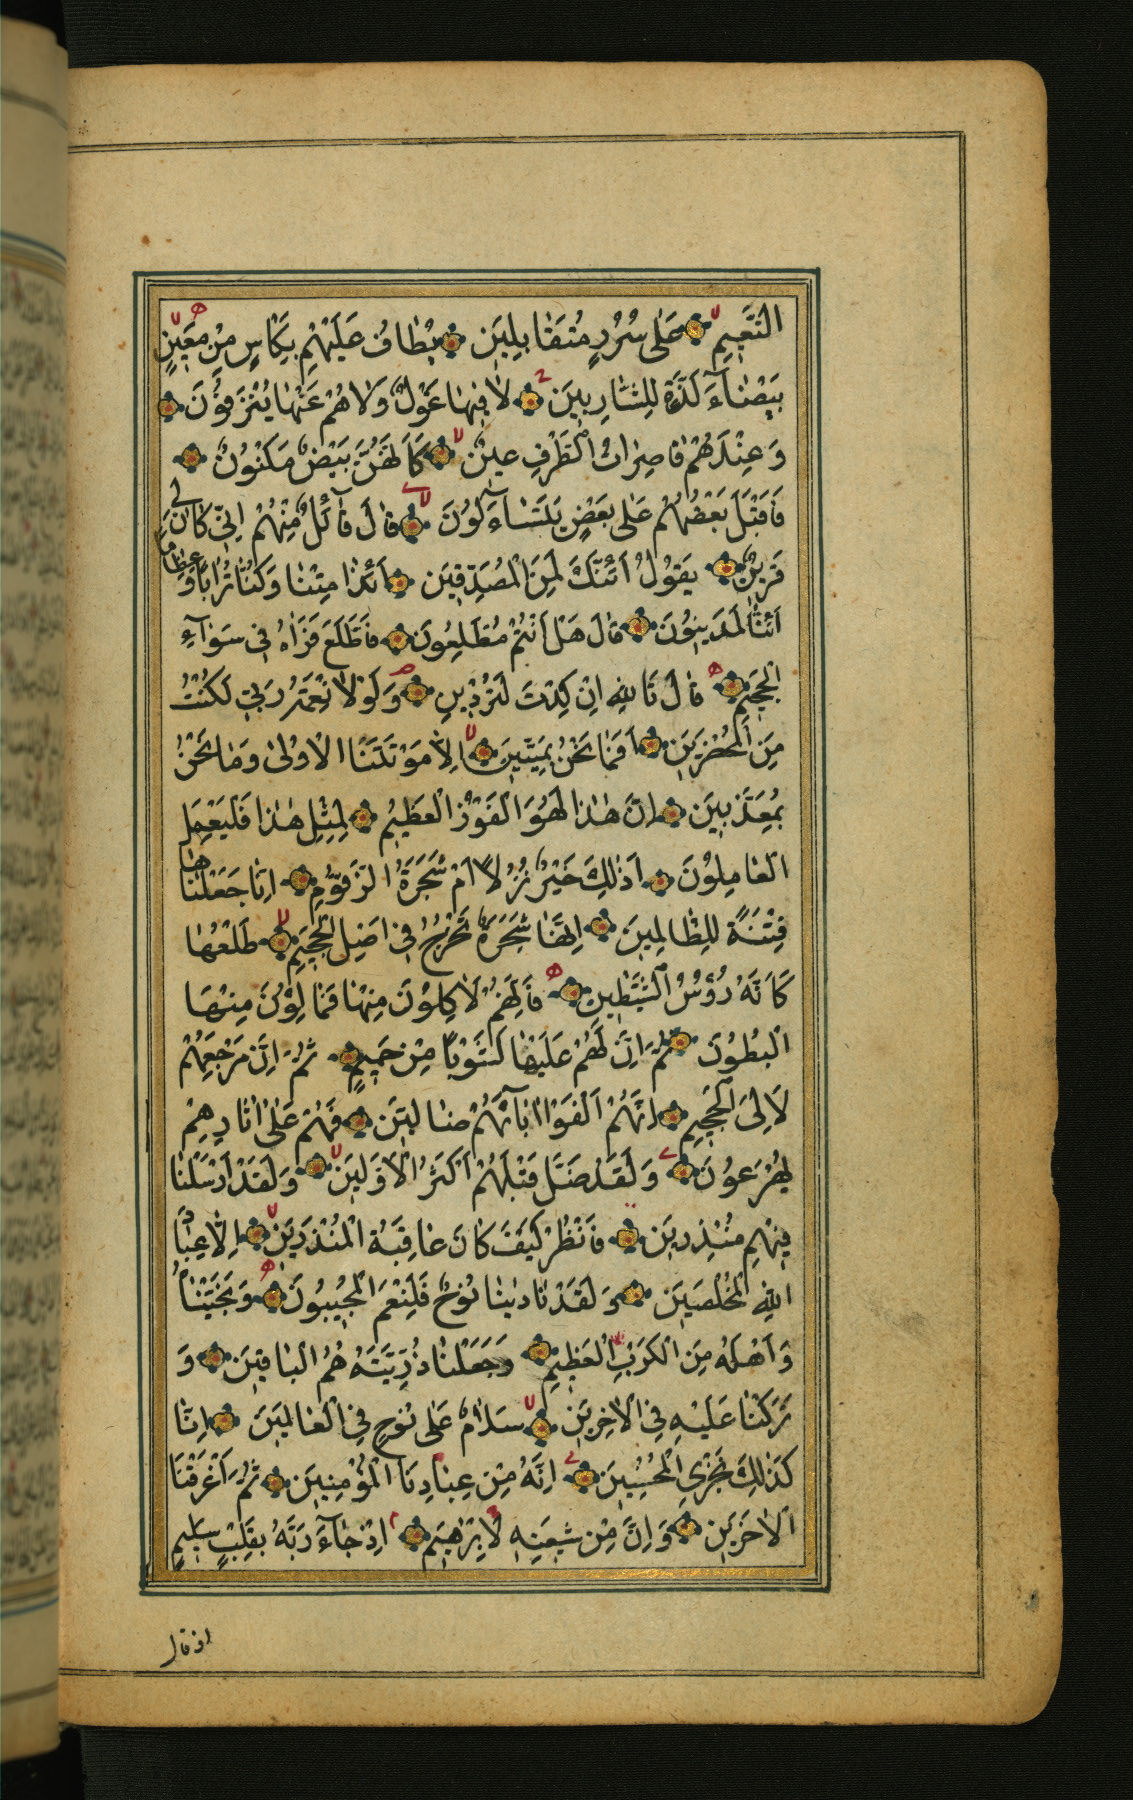 النَّعِيمِ عَلٰى سُرُرٍ مُتَقَابِلِينَ يُطَافُ عَلَيْهِمْ بِكَاْسٍ مِنْ مَعِينٍ
بَيْضَاۤءَ لَذَّةٍ لِلشَّارِبِينَ لَا فِيهَا غَوْلٌ وَلَا هُمْ عَنْهَا يُنْزَفُونَ
وَعِنْدَهُمْ قَاصِرَاتُ الطَّرْفِ عِينٌ كَاَنَّهُنَّ بَيْضٌ مَكْنُونٌ
فَاَقْبَلَ بَعْضُهُمْ عَلٰى بَعْضٍ يَتَسَاۤءَلُونَ قَالَ قَاۤئِلٌ مِنْهُمْ اِنِّي كَانَ لِي
قَرِينٌ يَقُولُ اَئِنَّكَ لَمِنَ الْمُصَدِّقِينَ اَئِذَا مِتْنَا وَكُنَّا تُرَابًا وَعِظَامًا
اَئِنَّا لَمَدِينُونَ قَالَ هَلْ اَنْتُمْ مُطَّلِعُونَ فَاطَّلَعَ فَرَاٰهُ فِي سَوَاۤءِ
الْجَحِيمِ قَالَ تَاللّٰهِ اِنْ كِدْتَ لَتُرْدِينِ وَلَوْلَا نِعْمَةُ رَبِّي لَكُنْتُ
مِنَ الْمُحْضَرِينَ اَفَمَا نَحْنُ بِمَيِّتِينَ اِلَّا مَوْتَتَنَا الْاُولٰى وَمَا نَحْنُ
بِمُعَذَّبِينَ اِنَّ هٰذَا لَهُوَ الْفَوْزُ الْعَظِيمُ لِمِثْلِ هٰذَا فَلْيَعْمَلِ
الْعَامِلُونَ اَذٰلِكَ خَيْرٌ نُزُلًا اَمْ شَجَرَةُ الزَّقُّومِ اِنَّا جَعَلْنَاهَا
فِتْنَةً لِلظَّالِمِينَ اِنَّهَا شَجَرَةٌ تَخْرُجُ فِي اَصْلِ الْجَحِيمِ طَلْعُهَا
كَاَنَّهُ رُؤُسُ الشَّيَاطِينِ فَاِنَّهُمْ لَاٰكِلُونَ مِنْهَا فَمَالِؤُنَ مِنْهَا
الْبُطُونَ ثُمَّ اِنَّ لَهُمْ عَلَيْهَا لَشَوْبًا مِنْ حَمِيمٍ ثُمَّ اِنَّ مَرْجِعَهُمْ
لَاِلَى الْجَحِيمِ اِنَّهُمْ اَلْفَوْا اٰبَاۤءَهُمْ ضَاۤلِّينَ فَهُمْ عَلٰى اٰثَارِهِمْ
يُهْرَعُونَ وَلَقَدْ ضَلَّ قَبْلَهُمْ اَكْثَرُ الْاَوَّلِينَ وَلَقَدْ اَرْسَلْنَا
فِيهِمْ مُنْذِرِينَ فَانْظُرْ كَيْفَ كَانَ عَاقِبَةُ الْمُنْذَرِينَ اِلَّا عِبَادَ
اللّٰهِ الْمُخْلَصِينَ وَلَقَدْ نَادٰينَا نُوحٌ فَلَنِعْمَ الْمُجِيبُونَ وَنَجَّيْنَاهُ
وَاَهْلَهُ مِنَ الْكَرْبِ الْعَظِيمِ وَجَعَلْنَا ذُرِّيَّتَهُ هُمُ الْبَاقِينَ وَ
تَرَكْنَا عَلَيْهِ فِي الْاٰخِرِينَ سَلَامٌ عَلٰى نُوحٍ فِي الْعَالَمِينَ اِنَّا
كَذٰلِكَ نَجْزِي الْمُحْسِنِينَ اِنَّهُ مِنْ عِبَادِنَا الْمُؤْمِنِينَ ثُمَّ اَغْرَقْنَا
الْاٰخَرِينَ وَاِنَّ مِنْ شِيعَتِهِ لَاِبْرٰهِيمَ اِذْ جَاۤءَ رَبَّهُ بِقَلْبٍ سَلِيمٍ
اذ قال